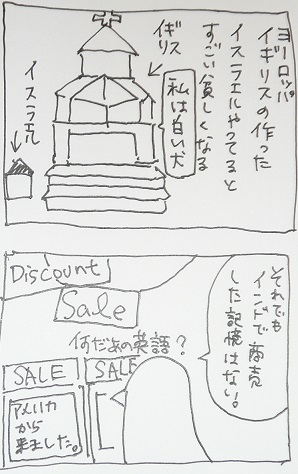 ヨーロッパ
イギリスの作った
イスラエルやってると
すごい貧しくなる
イギリス
私は白い犬
イスラエル
それでも
インドで商売
した記憶はない。
Discount
Sale
何だあの英語?
SALE
SALE
アメリカ
から
来ました。